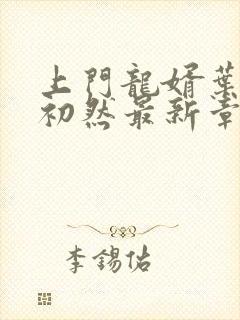 上門龍婿葉
初然最新章
李錫佑